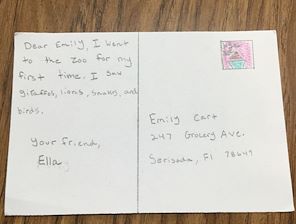 Dear Emily, I went
to the Zoo for my
first time. I saw
giraffes, lions, snakes, and
birds.
Your friend,
Ella
Emily Cart
247 Grocery Ave.
Serisoda, Fl 78649